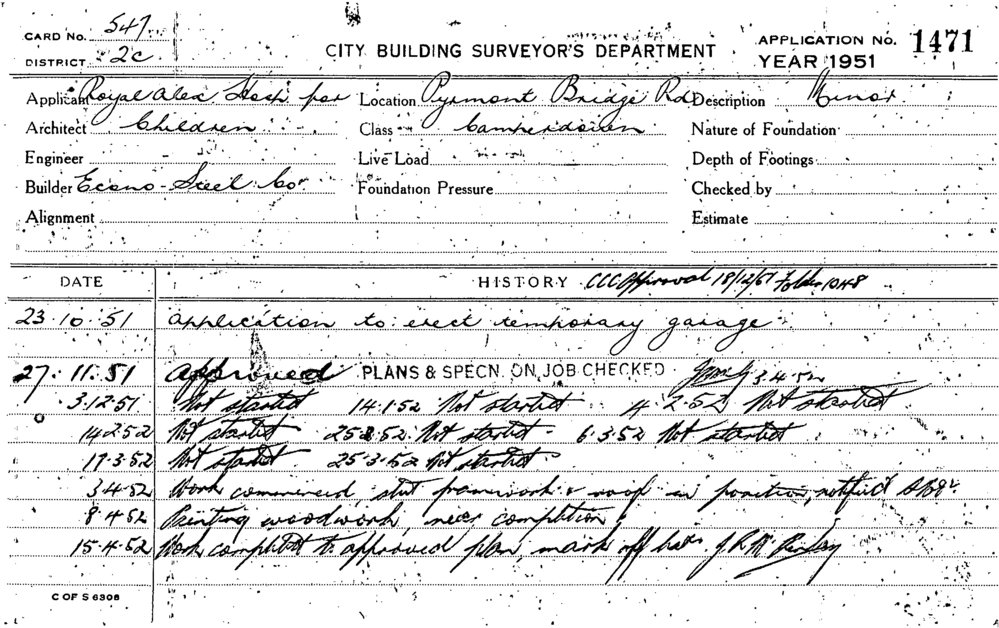 CARD No. 547
DISTRICT 2C
CITY BUILDING SURVEYOR'S DEPARTMENT
APPLICATION No. 1471
YEAR 1951
Applicant Royal Alex Hosp for Location Pyrmont Bridge Rd Description Minor
Architect Children Class Camperdown Nature of Foundation
Engineer Live Load Depth of Footings
Builder Econo-Steel Co Foundation Pressure Checked by
Alignment Estimate
DATE HISTORY CCC Approval 18/12/51 Folder 1048
23.10.51 application to erect temporary garage
27.11.51 approved PLANS & SPECN. ON JOB CHECKED 3.4.52
3.12.51 Not started 14.1.52 Not started 4.2.52 Not started
14.2.52 Not started 25.2.52 Not started 6.3.52 Not started
17.3.52 Not started 25.3.52 Not started
3.4.52 Work commenced, framework & roof in position, notified
8.4.52 Painting woodwork, near completion
15.4.52 Work completed to approved plan, mark off
C OF S 6308